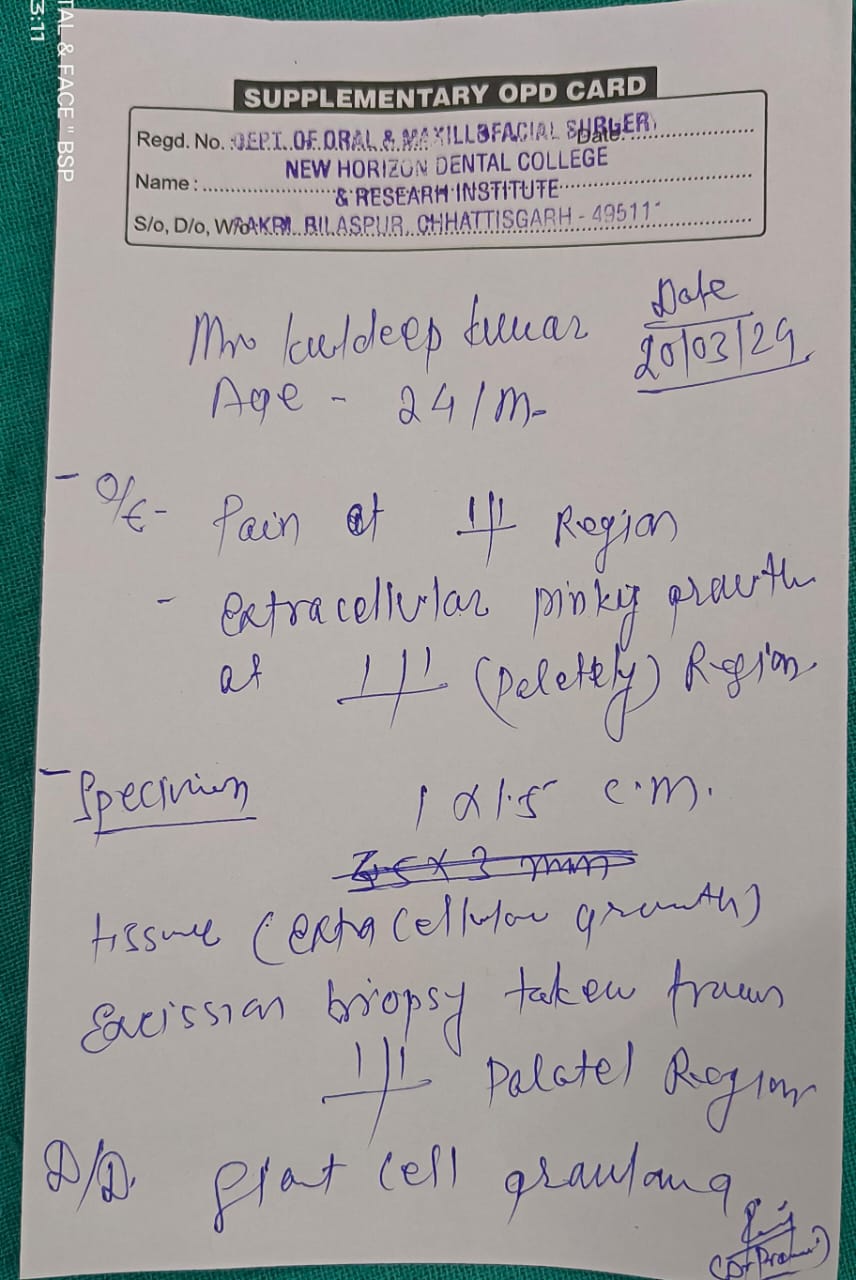 3:11
TAL & FACE " BSP
SUPPLEMENTARY OPD CARD
Regd. No. DEPT. OF ORAL & MAXILLOFACIAL SURGERY Date:
NEW HORIZON DENTAL COLLEGE
Name :
& RESEARH INSTITUTE
S/o, D/o, W/o SAKRI, BILASPUR, CHHATTISGARH - 49511
Mr Kuldeep Kumar
Date
20/03/29
Age - 24/M-
- O/E- Pain at 1|1 Region
- extracellular pinky growth
at 1|1 (Paletely) Region
- Specimien 1 x 1.5 c.m.
3.5 x 3 mm
tissue (extra cellular growth)
Excission biopsy taken from
1|1 Palatel Region
D/D. giant cell